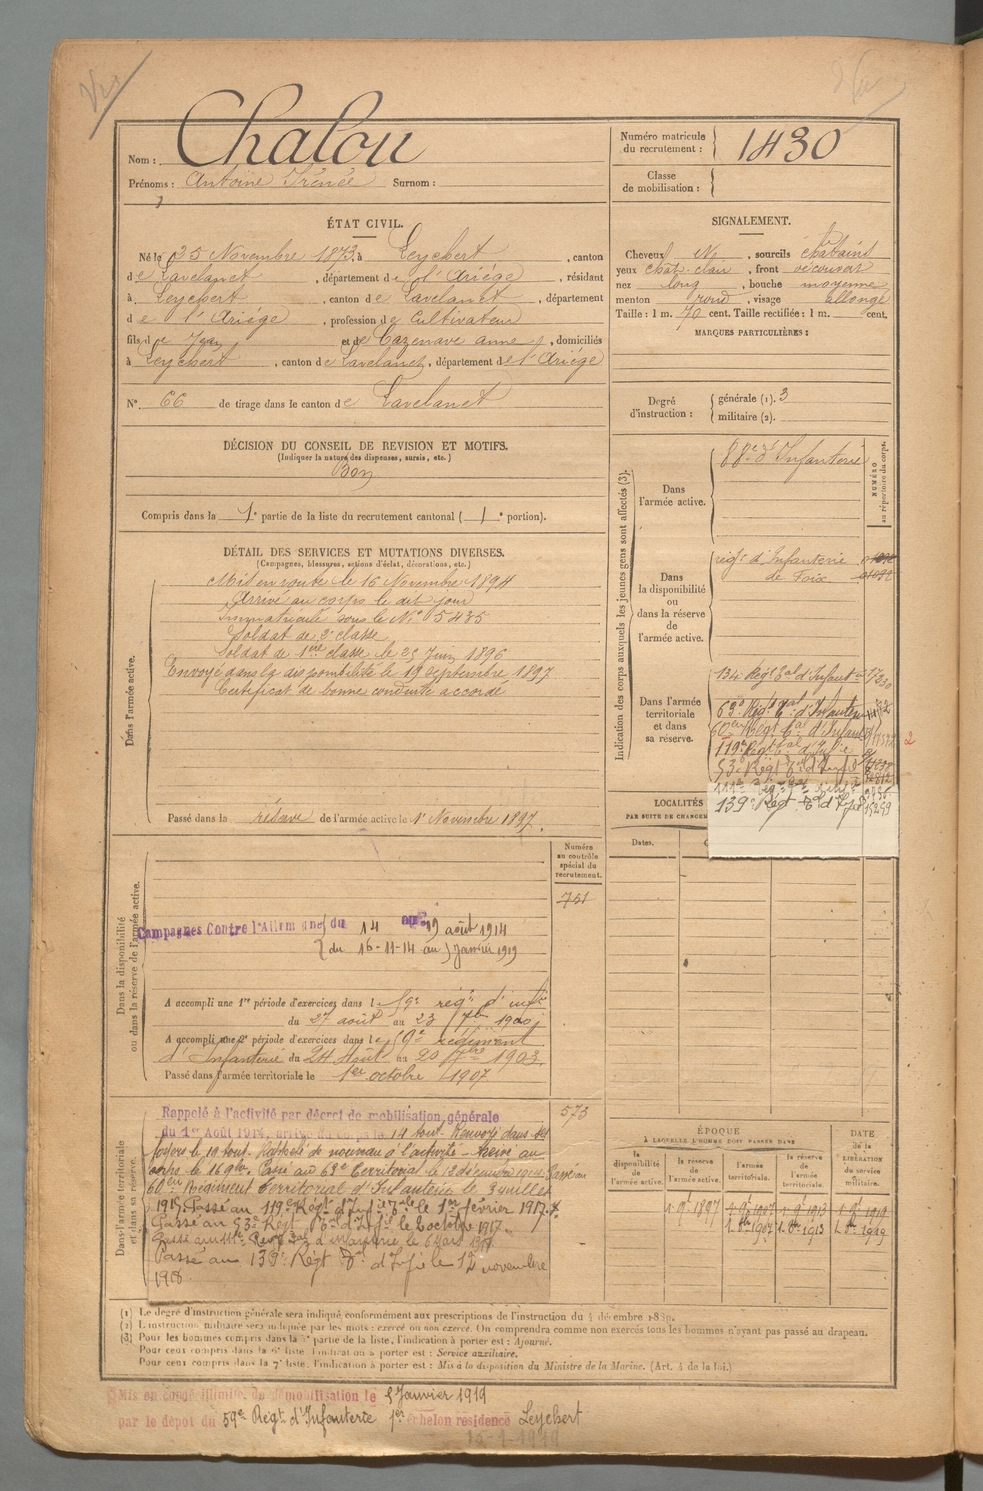 Nom : Chalou
Prénoms : Antoine Irénée Surnom :
Numéro matricule du recrutement : 1430
Classe de mobilisation :
ÉTAT CIVIL.
Né le 25 Novembre 1873, à Leychert, canton
de Lavelanet, département de l'Ariége, résidant
à Leychert, canton de Lavelanet, département
de l'Ariége, profession de Cultivateur
fils de Jean et de Cazenave anne, domiciliés
à Leychert, canton de Lavelanet, département de l'Ariége
N° 66 de tirage dans le canton de Lavelanet
SIGNALEMENT.
Cheveux , sourcils chatains
yeux chat. clair, front découvert
nez long, bouche moyenne
menton rond, visage allongé
Taille : 1 m. 70 cent. Taille rectifiée : 1 m. cent.
MARQUES PARTICULIÈRES :
Degré d'instruction : générale (1). 3
militaire (2).
DÉCISION DU CONSEIL DE REVISION ET MOTIFS.
(Indiquer la nature des dispenses, sursis, etc.)
Bon
Compris dans la 1e partie de la liste du recrutement cantonal ( 1e portion).
DÉTAIL DES SERVICES ET MUTATIONS DIVERSES.
(Campagnes, blessures, actions d'éclat, décorations, etc.)
Dans l'armée active.
Mis en route le 16 Novembre 1894
Arrivé au corps le dit jour
Immatriculé sous le N° 5435
Soldat de 2e classe
Soldat de 1ère classe le 25 Juin 1896
Envoyé dans la disponibilité le 19 septembre 1897
Certificat de bonne conduite accordé
Passé dans la réserve de l'armée active le 1er Novembre 1897.
Indication des corps auxquels les jeunes gens sont affectés (3).
NUMÉRO au répertoire du corps.
Dans l'armée active.
88e d'Infanterie
Dans la disponibilité ou dans la réserve de l'armée active.
régt d'Infanterie
de Foix
Dans l'armée territoriale et dans sa réserve.
134 Régt Tal d'Infantie
63e Régt Tal d'Infanterie
60e Régt Tal d'Infant
119e Régt Tal d'Infie
53e Régt Tal d'Infie
139e Régt Tal d'Infie
LOCALITÉS
PAR SUITE DE CHANGEM
Dates.
Dans la disponibilité ou dans la réserve de l'armée active.
Numéro au contrôle spécial du recrutement.
751
Campagnes Contre l'Allemagne du 14 au 19 août 1914
du 16-11-14 au 5 Janvier 1919
A accompli une 1re période d'exercices dans le 59e régt d'infie
du 27 août au 23 7bre 1900
A accompli une 2e période d'exercices dans le 59e régiment
d'Infanterie du 24 Août au 20 7bre 1903.
Passé dans l'armée territoriale le 1er octobre 1907
Dans l'armée territoriale et dans sa réserve.
573
Rappelé à l'activité par décret de mobilisation générale
du 1er Août 1914, arrivé au corps le 14 aout. Renvoyé dans ses
foyers le 19 aout. Rappelé de nouveau à l'activité - Arrivé au
corps le 16 9bre. Passé au 63e Territorial le 12 décembre 1914. Passé au
60eme Régiment Territorial d'Infanterie le 3 juillet
1915. Passé au 119e Régt d'Infie Tale le 1er février 1917.
Passé au 53e Régt Tal d'Infie le 8 octobre 1917.
Passé au d'infanterie le 6 Mars 1918.
Passé au 139e Régt Tal d'Infie le 12 novembre
1918.
ÉPOQUE
À LAQUELLE L'HOMME DOIT PASSER DANS
DATE de la LIBÉRATION du service militaire.
la disponibilité de l'armée active.
la réserve de l'armée active.
l'armée territoriale.
la réserve de l'armée territoriale.
1. 9bre 1897 1. 9bre 1907 1. 9bre 1913 1. 9bre 1919
1. 8bre 1907 1. 8bre 1913 1. 8bre 1919
(1) Le degré d'instruction générale sera indiqué conformément aux prescriptions de l'instruction du 4 décembre 1889.
(2) L'instruction militaire sera indiquée par les mots : exercé ou non exercé. On comprendra comme non exercés tous les hommes n'ayant pas passé au drapeau.
(3) Pour les hommes compris dans la 5e partie de la liste, l'indication à porter est : Ajourné.
Pour ceux compris dans la 6e liste, l'indication à porter est : Service auxiliaire.
Pour ceux compris dans la 7e liste, l'indication à porter est : Mis à la disposition du Ministre de la Marine. (Art. 4 de la loi.)
Mis en congé illimité de démobilisation le 5 Janvier 1919
par le dépot du 59e Régt d'Infanterie 1er échelon résidence Leychert
16-1-1919